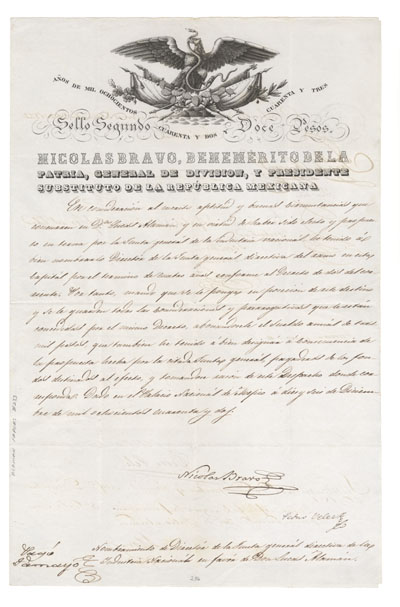 AÑOS DE MIL OCHOCIENTOS CUARENTA Y DOS Y CUARENTA Y TRES
Sello Segundo Doce Pesos.
NICOLAS BRAVO, BENEMÉRITO DE LA
PATRIA, GENERAL DE DIVISION, Y PRESIDENTE
SUBSTITUTO DE LA REPUBLICA MEXICANA
En consideracion al merito aptitud y buenas circunstancias que
concurren en Dn. Lucas Alamán, y en virtud de
en terna por la Junta general de la Industria nacional, he tenido á
bien nombrarle Director de la Junta general directiva del ramo en esta
Capital por el termino de años conforme al Decreto de dos del
Por tanto, mando que se le ponga en posesion de este destino
y se le guarden todas las consideraciones y prerrogativas que le están
concedidas por el mismo Decreto, abonandosele el sueldo anual de
mil pesos, que tambien he tenido á bien designar á consecuencia de
la propuesta hecha por la citada Junta general, pagaderos de los fon-
dos destinados al efecto, y tomandose razon de este Despacho donde cor-
responda. Dado en el Palacio Nacional de Mexico á diez y seis de Diciem-
bre de mil ochocientos cuarenta y dos.
Nicolas Bravo
Pedro Velez
Nombramiento de Director de la Junta general directiva de la
Industria Nacional en favor de Don Lucas Alamán.